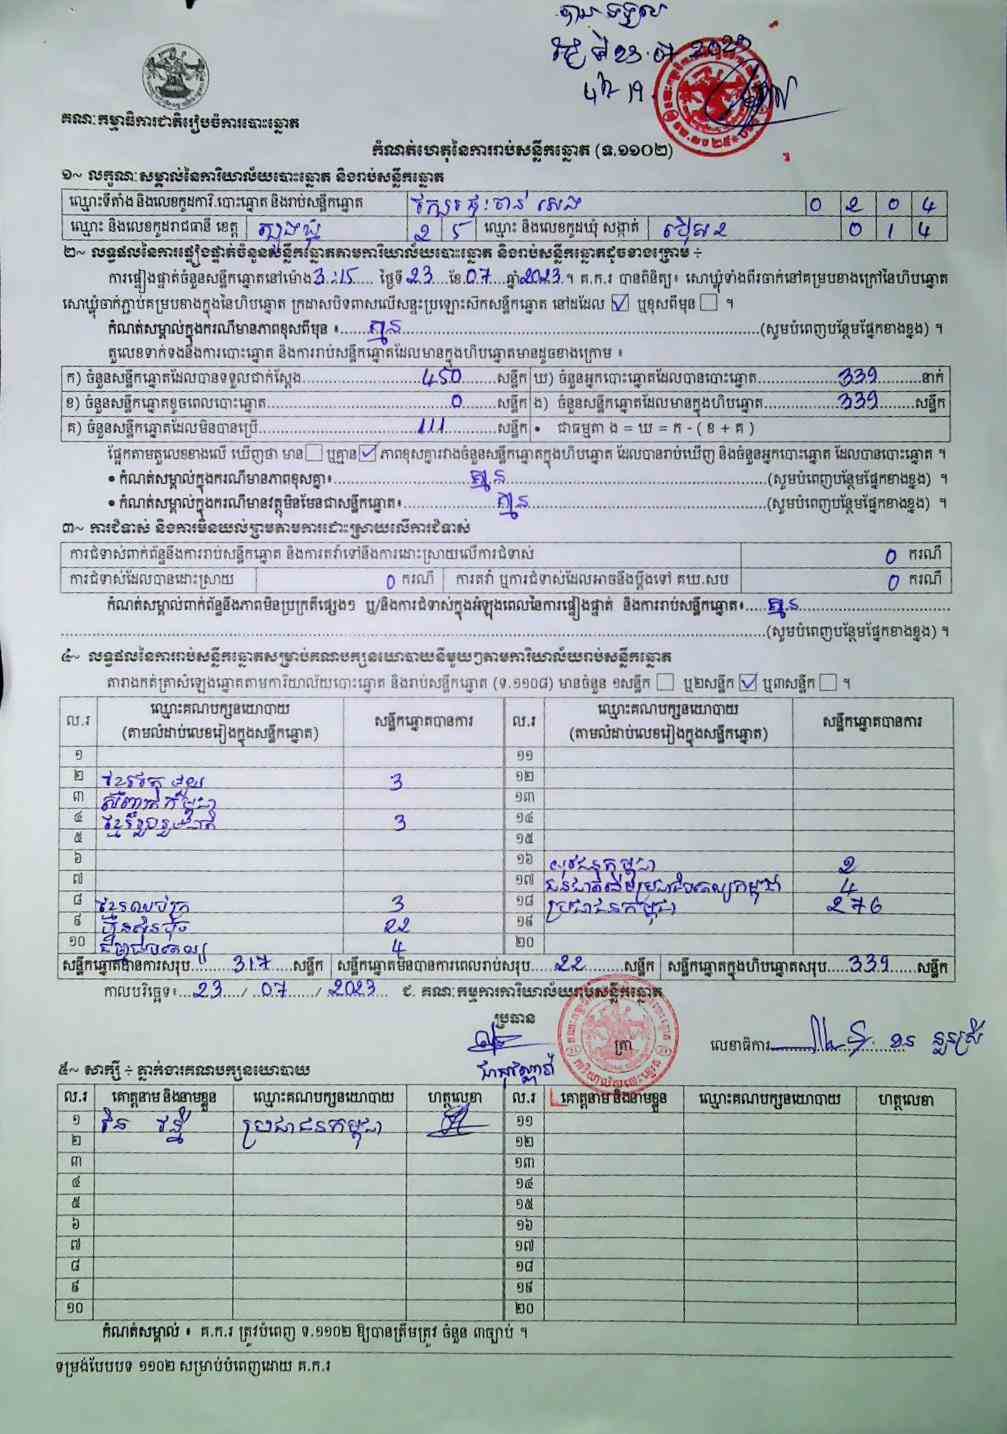 បានទទួល
ថ្ងៃទី 23.07.2023
គណៈកម្មាធិការជាតិរៀបចំការបោះឆ្នោត
កំណត់ហេតុនៃការរាប់សន្លឹកឆ្នោត (ទ.១១០២)
១~ លក្ខណៈសម្គាល់នៃការិយាល័យបោះឆ្នោត និងរាប់សន្លឹកឆ្នោត
ឈ្មោះទីតាំង និងលេខកូដការិ.បោះឆ្នោត និងរាប់សន្លឹកឆ្នោត 0 2 0 4
ឈ្មោះ និងលេខកូដរាជធានី ខេត្ត ត្បូងឃ្មុំ 2 5 ឈ្មោះ និងលេខកូដឃុំ សង្កាត់ 0 1 4
២~ លទ្ធផលនៃការផ្ទៀងផ្ទាត់ចំនួនសន្លឹកឆ្នោតតាមការិយាល័យបោះឆ្នោត និងរាប់សន្លឹកឆ្នោតដូចខាងក្រោម ÷
ការផ្ទៀងផ្ទាត់ចំនួនសន្លឹកឆ្នោតនៅម៉ោង 3:15 ថ្ងៃទី 23 ខែ 07 ឆ្នាំ 2023 ។ គ.ក.រ បានពិនិត្យ៖ សោឃ្លុំទាំងពីរចាក់នៅគម្របខាងក្រៅនៃហិបឆ្នោត
សោឃ្លុំចាក់ភ្ជាប់គម្របខាងក្នុងនៃហិបឆ្នោត ក្រដាសបិទពាសលើសន្ទះប្រឡោះស៊ីកសន្លឹកឆ្នោត នៅដដែល ☑ ឬខុសពីមុន ☐ ។
កំណត់សម្គាល់ក្នុងករណីមានភាពខុសពីមុន ៖ គ្មាន (សូមបំពេញបន្ថែមផ្នែកខាងខ្នង) ។
តួលេខទាក់ទងនឹងការបោះឆ្នោត និងការរាប់សន្លឹកឆ្នោតដែលមានក្នុងហិបឆ្នោតមានដូចខាងក្រោម ៖
ក) ចំនួនសន្លឹកឆ្នោតដែលបានទទួលជាក់ស្តែង 450 សន្លឹក ឃ) ចំនួនអ្នកបោះឆ្នោតដែលបានបោះឆ្នោត 339 នាក់
ខ) ចំនួនសន្លឹកឆ្នោតខូចពេលបោះឆ្នោត 0 សន្លឹក ង) ចំនួនសន្លឹកឆ្នោតដែលមានក្នុងហិបឆ្នោត 339 សន្លឹក
គ) ចំនួនសន្លឹកឆ្នោតដែលមិនបានប្រើ 111 សន្លឹក • ជាធម្មតា ង = ឃ = ក - ( ខ + គ )
ផ្អែកតាមតួលេខខាងលើ ឃើញថា មាន ☐ ឬគ្មាន ☑ ភាពខុសគ្នារវាងចំនួនសន្លឹកឆ្នោតក្នុងហិបឆ្នោត ដែលបានរាប់ឃើញ និងចំនួនអ្នកបោះឆ្នោត ដែលបានបោះឆ្នោត ។
• កំណត់សម្គាល់ក្នុងករណីមានភាពខុសគ្នា៖ គ្មាន (សូមបំពេញបន្ថែមផ្នែកខាងខ្នង) ។
• កំណត់សម្គាល់ក្នុងករណីមានវត្ថុមិនមែនជាសន្លឹកឆ្នោត៖ គ្មាន (សូមបំពេញបន្ថែមផ្នែកខាងខ្នង) ។
៣~ ការជំទាស់ និងការមិនយល់ព្រមតាមការដោះស្រាយលើការជំទាស់
ការជំទាស់ពាក់ព័ន្ធនឹងការរាប់សន្លឹកឆ្នោត និងការតវ៉ាទៅនឹងការដោះស្រាយលើការជំទាស់ 0 ករណី
ការជំទាស់ដែលបានដោះស្រាយ 0 ករណី ការតវ៉ា ឬការជំទាស់ដែលអាចនឹងប្តឹងទៅ គឃ.សប 0 ករណី
កំណត់សម្គាល់ពាក់ព័ន្ធនឹងភាពមិនប្រក្រតីផ្សេងៗ ឬ/និងការជំទាស់ក្នុងអំឡុងពេលនៃការផ្ទៀងផ្ទាត់ និងការរាប់សន្លឹកឆ្នោត៖ គ្មាន
(សូមបំពេញបន្ថែមផ្នែកខាងខ្នង) ។
៤~ លទ្ធផលនៃការរាប់សន្លឹកឆ្នោតសម្រាប់គណបក្សនយោបាយនីមួយៗតាមការិយាល័យរាប់សន្លឹកឆ្នោត
តារាងកត់ត្រាសំឡេងឆ្នោតតាមការិយាល័យបោះឆ្នោត និងរាប់សន្លឹកឆ្នោត (ទ.១១០៨) មានចំនួន ១សន្លឹក ☐ ឬ២សន្លឹក ☑ ឬ៣សន្លឹក ☐ ។
ល.រ ឈ្មោះគណបក្សនយោបាយ (តាមលំដាប់លេខរៀងក្នុងសន្លឹកឆ្នោត) សន្លឹកឆ្នោតបានការ ល.រ ឈ្មោះគណបក្សនយោបាយ (តាមលំដាប់លេខរៀងក្នុងសន្លឹកឆ្នោត) សន្លឹកឆ្នោតបានការ
១ ១១
២ 3 ១២
៣ ១៣
៤ 3 ១៤
៥ ១៥
៦ ១៦ យុវជនកម្ពុជា 2
៧ ១៧ ជនជាតិដើមប្រជាធិបតេយ្យកម្ពុជា 4
៨ ខ្មែរឈប់ក្រ 3 ១៨ ប្រជាជនកម្ពុជា 276
៩ ហ៊្វុនស៊ិនប៉ិច 22 ១៩
១០ 4 ២០
សន្លឹកឆ្នោតបានការសរុប 317 សន្លឹក សន្លឹកឆ្នោតមិនបានការពេលរាប់សរុប 22 សន្លឹក សន្លឹកឆ្នោតក្នុងហិបឆ្នោតសរុប 339 សន្លឹក
កាលបរិច្ឆេទ៖ 23 / 07 / 2023 ជ. គណៈកម្មការការិយាល័យរាប់សន្លឹកឆ្នោត
ប្រធាន
ត្រា លេខាធិការ
៥~ សាក្សី ÷ ភ្នាក់ងារគណបក្សនយោបាយ
ល.រ គោត្តនាម និងនាមខ្លួន ឈ្មោះគណបក្សនយោបាយ ហត្ថលេខា ល.រ គោត្តនាម និងនាមខ្លួន ឈ្មោះគណបក្សនយោបាយ ហត្ថលេខា
១ ប្រជាជនកម្ពុជា ១១
២ ១២
៣ ១៣
៤ ១៤
៥ ១៥
៦ ១៦
៧ ១៧
៨ ១៨
៩ ១៩
១០ ២០
កំណត់សម្គាល់ ៖ គ.ក.រ ត្រូវបំពេញ ទ.១១០២ ឱ្យបានត្រឹមត្រូវ ចំនួន ៣ច្បាប់ ។
ទម្រង់បែបបទ ១១០២ សម្រាប់បំពេញដោយ គ.ក.រ